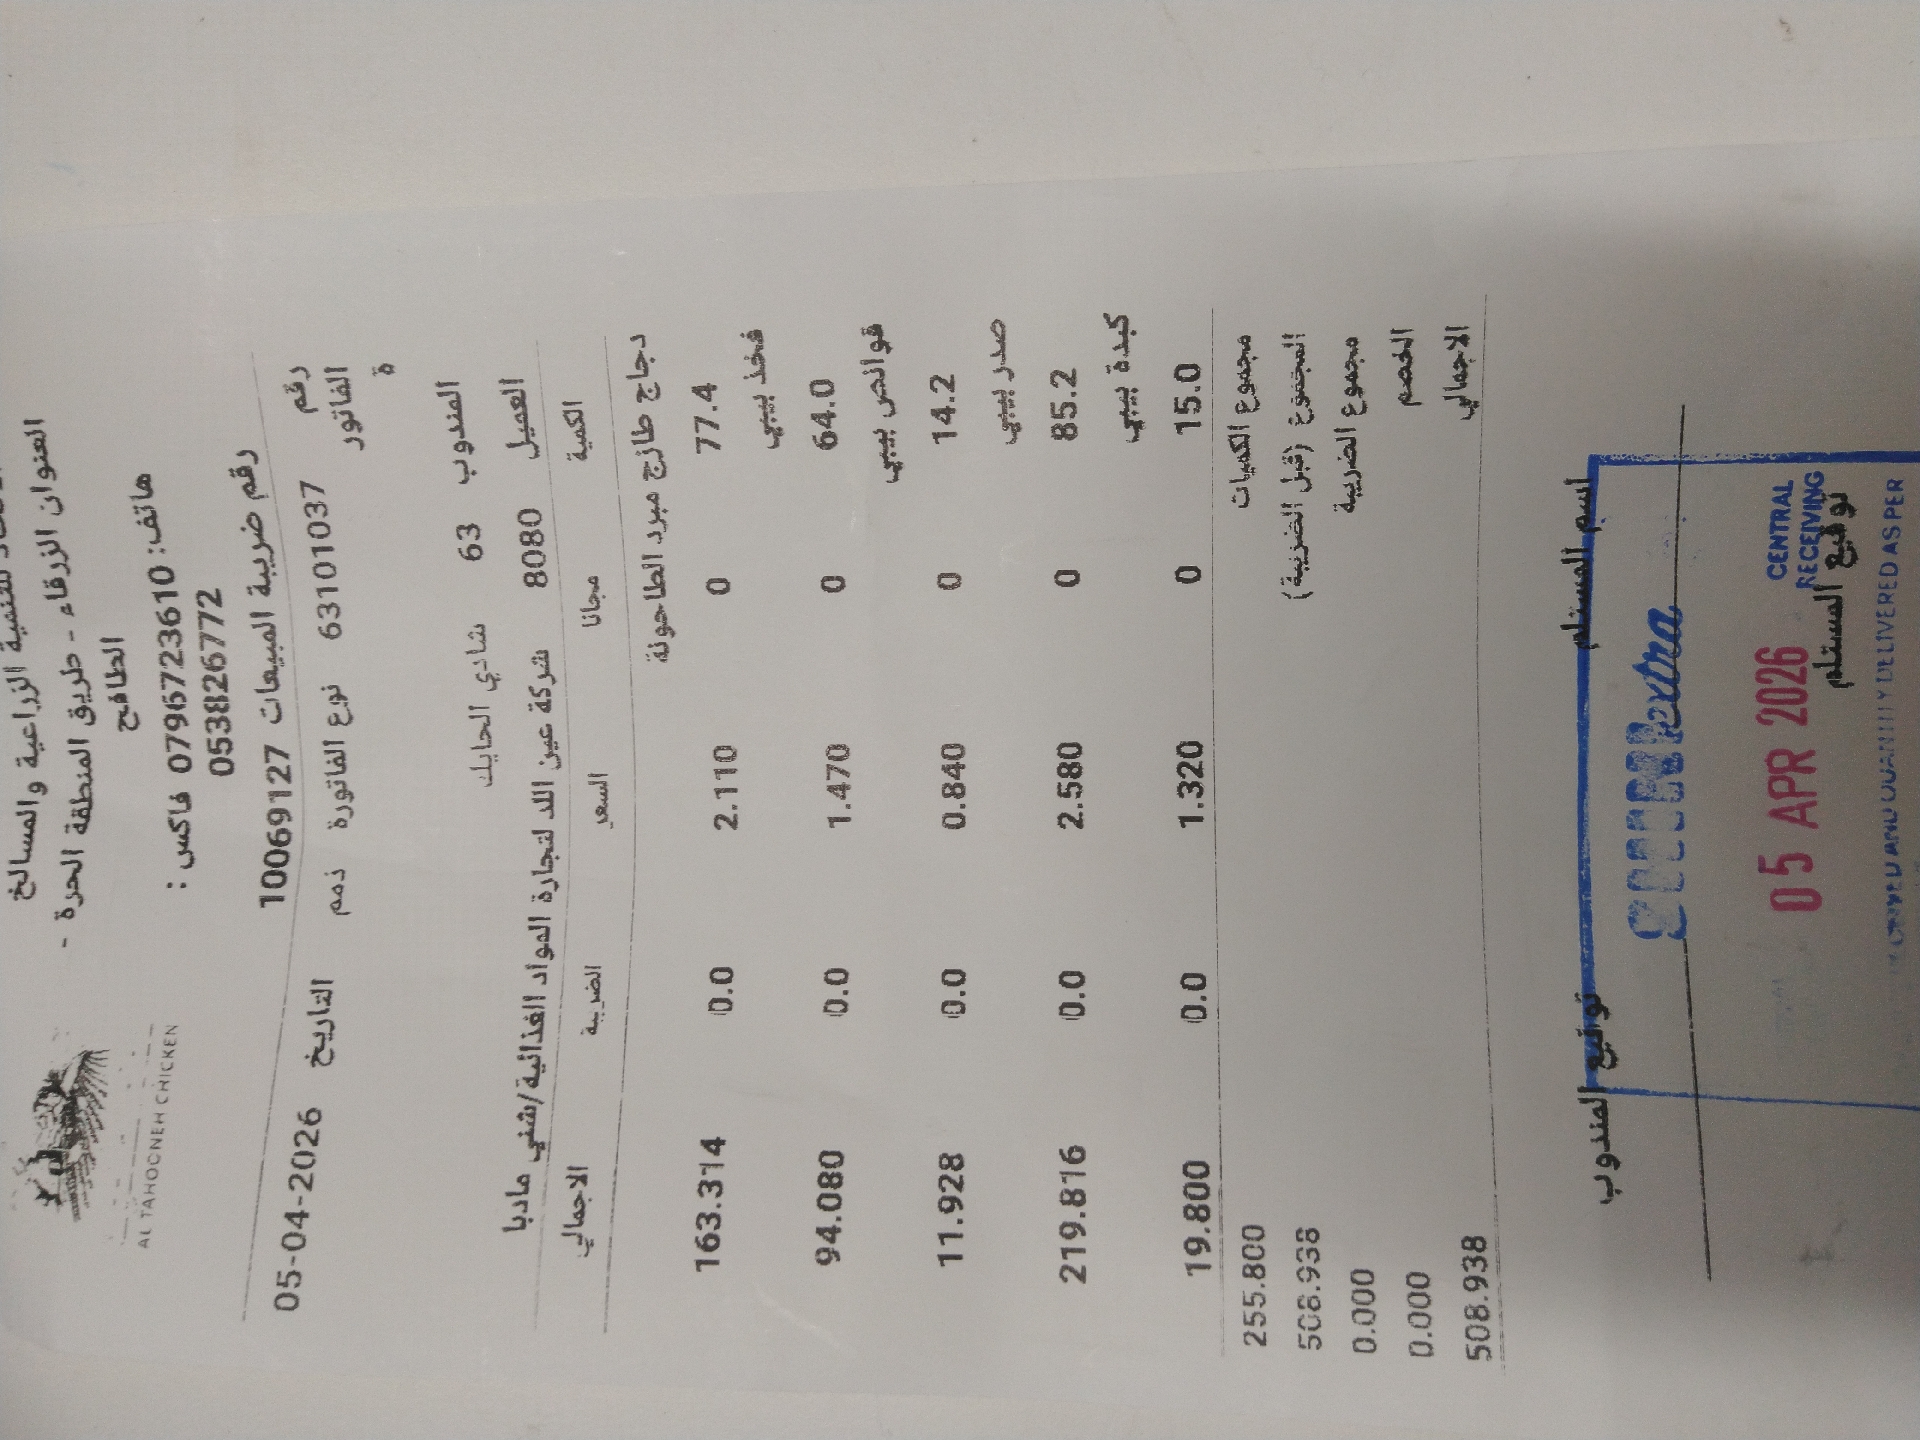 للتنمية الزراعية والمسالخ
العنوان الزرقاء - طريق المنطقة الحرة -
الطافح
هاتف: 0796723610 فاكس :
053826772
رقم ضريبة المبيعات 10069127
AL TAHOONEH CHICKEN
رقم الفاتورة 63101037 نوع الفاتورة ذمم التاريخ 05-04-2026
المندوب 63 شادي الحايك
العميل 8080 شركة عين اللد لتجارة المواد الغذائية/شني مادبا
الكمية مجانا السعر الضريبة الاجمالي
دجاج طازج مبرد الطاحونة
77.4 0 2.110 0.0 163.314
فخذ بيبي
64.0 0 1.470 0.0 94.080
قوانص بيبي
14.2 0 0.840 0.0 11.928
صدر بيبي
85.2 0 2.580 0.0 219.816
كبدة بيبي
15.0 0 1.320 0.0 19.800
مجموع الكميات 255.800
المجموع (قبل الضريبة) 508.938
مجموع الضريبة 0.000
الخصم 0.000
الاجمالي 508.938
اسم المستلم توقيع المندوب
extra
CENTRAL
RECEIVING
05 APR 2026
توقيع المستلم
AND QUANTITY DELIVERED AS PER